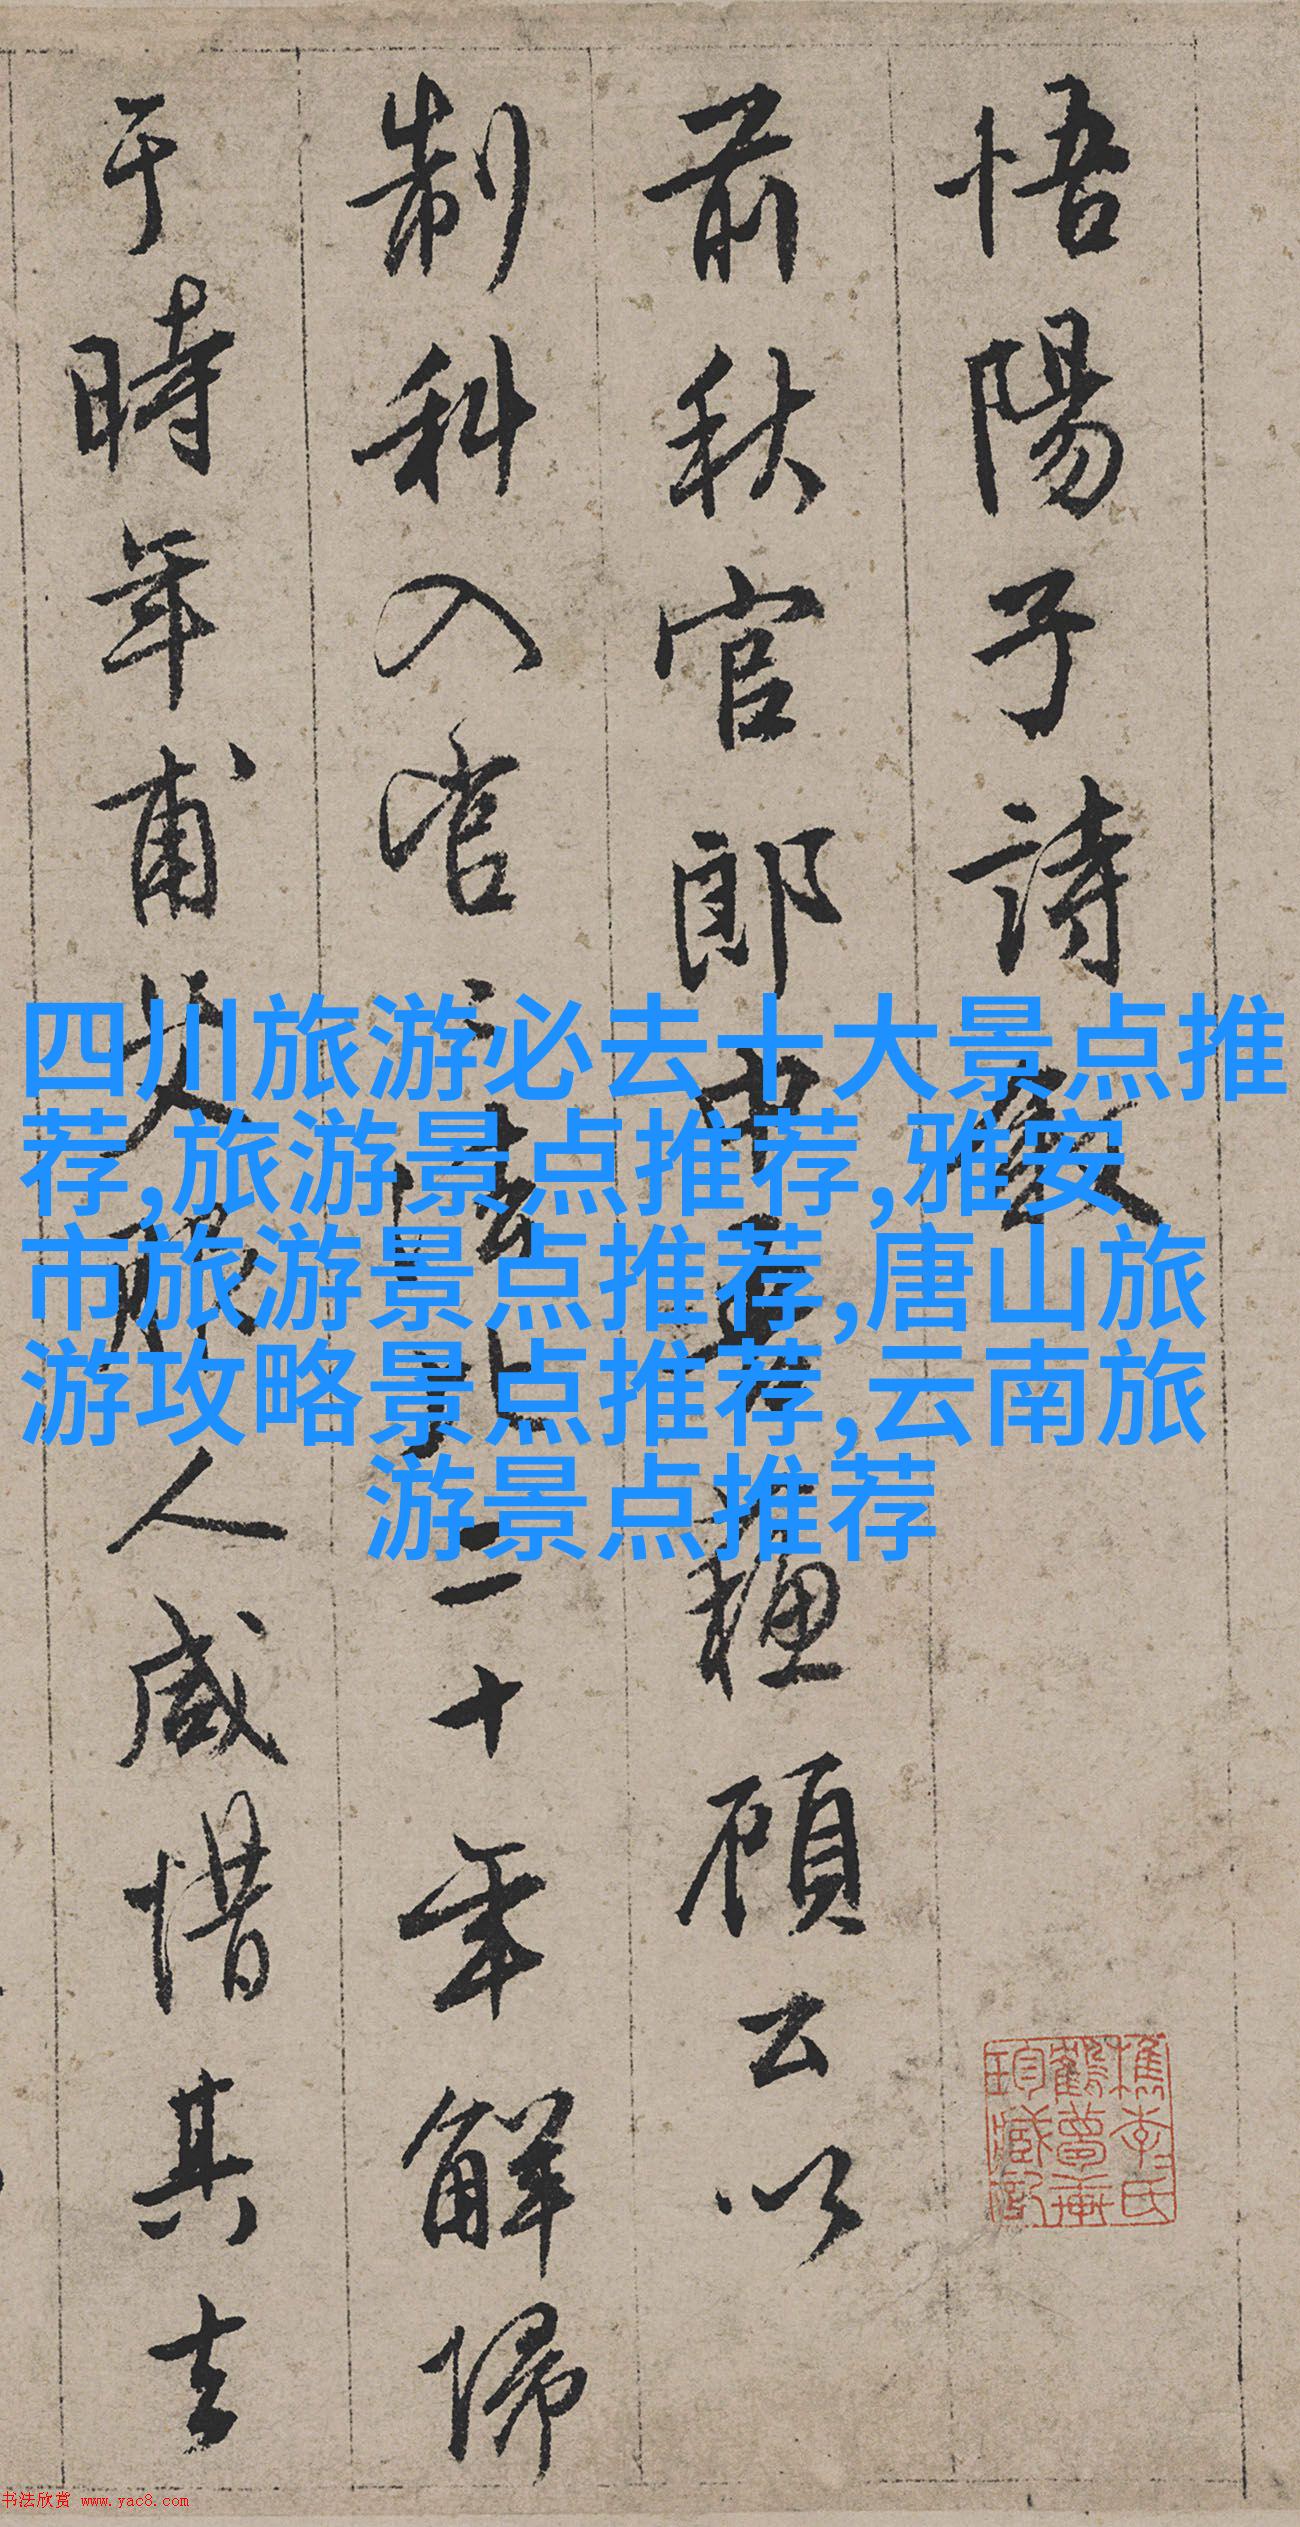 悟陽子詩敘
前秋官郎中吾蘇顧公以
制科入官二十年解歸
于時年甫艾服人咸惜其去
四川旅游必去十大景点推
荐,旅游景点推荐,雅安
市旅游景点推荐,唐山旅
游攻略景点推荐,云南旅
游景点推荐
檇李氏
鶴夢軒
珍藏記
书法欣赏 www.yac8.com